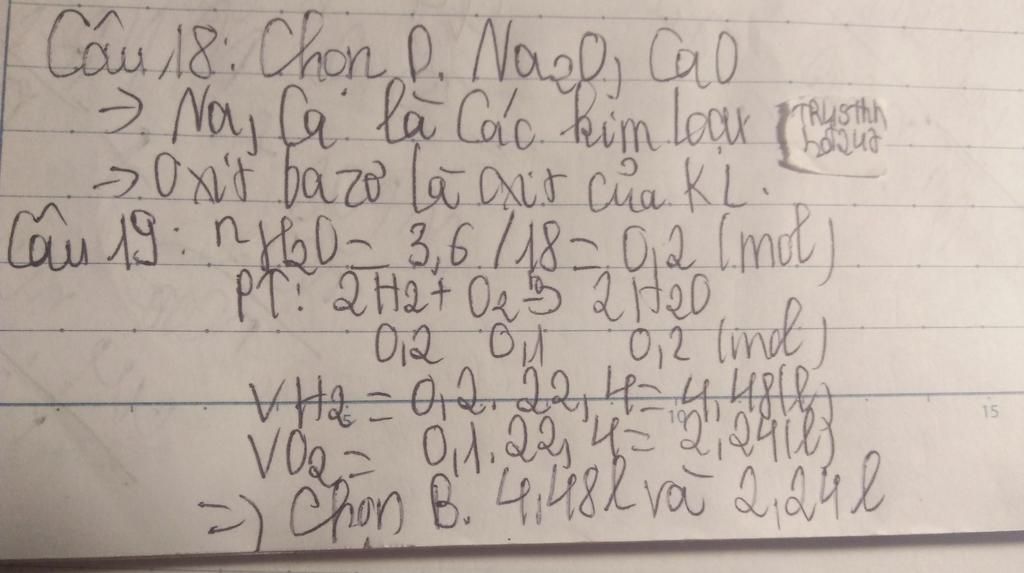 Câu 18: Chọn D. Na2O, CaO
→ Na, Ca là các kim loại
→ Oxit bazơ là oxit của KL.
Câu 19: nH2O = 3,6 / 18 = 0,2 (mol)
PT: 2H2 + O2 → 2H2O
0,2 0,1 0,2 (mol)
VH2 = 0,2. 22,4 = 4,48(l)
VO2 = 0,1. 22,4 = 2,24(l)
=> Chọn B. 4,48l và 2,24l
10 15